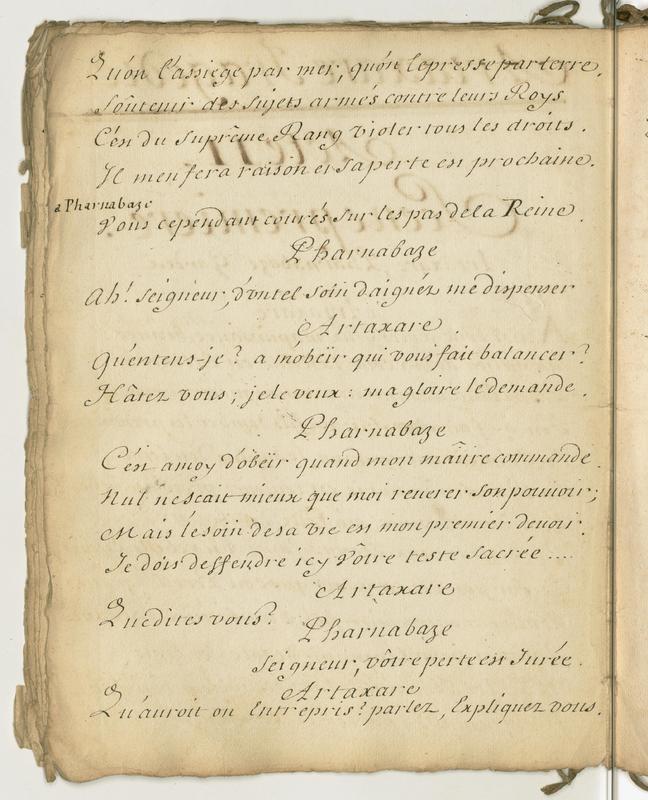 Qu'on l'assiege par mer, qu'on le presse par terre.
Soûtenir des sujets armés contre leurs Roys
C'est du Suprême Rang violer tous les droits.
Il m'en fera raison et sa perte est prochaine.
a Pharnabaze
Vous cependant courés sur les pas de la Reine.
Pharnabaze
Ah! Seigneur, d'un tel soin daignez me dispenser
Artaxare.
Qu'entens-je? a m'obëir qui vous fait balancer?
Hâtez vous; je le veux: ma gloire le demande.
Pharnabaze
C'est a moy d'obëir quand mon maître commande.
Nul ne scait mieux que moi reverer son pouvoir;
Mais le soin de sa vie est mon premier devoir.
Je dois deffendre icy vôtre teste Sacrée ....
Artaxare
Que dites vous?
Pharnabaze
Seigneur, vôtre perte est Jurée.
Artaxare
Qu'auroit on Entrepris? parlez, Expliquez vous.